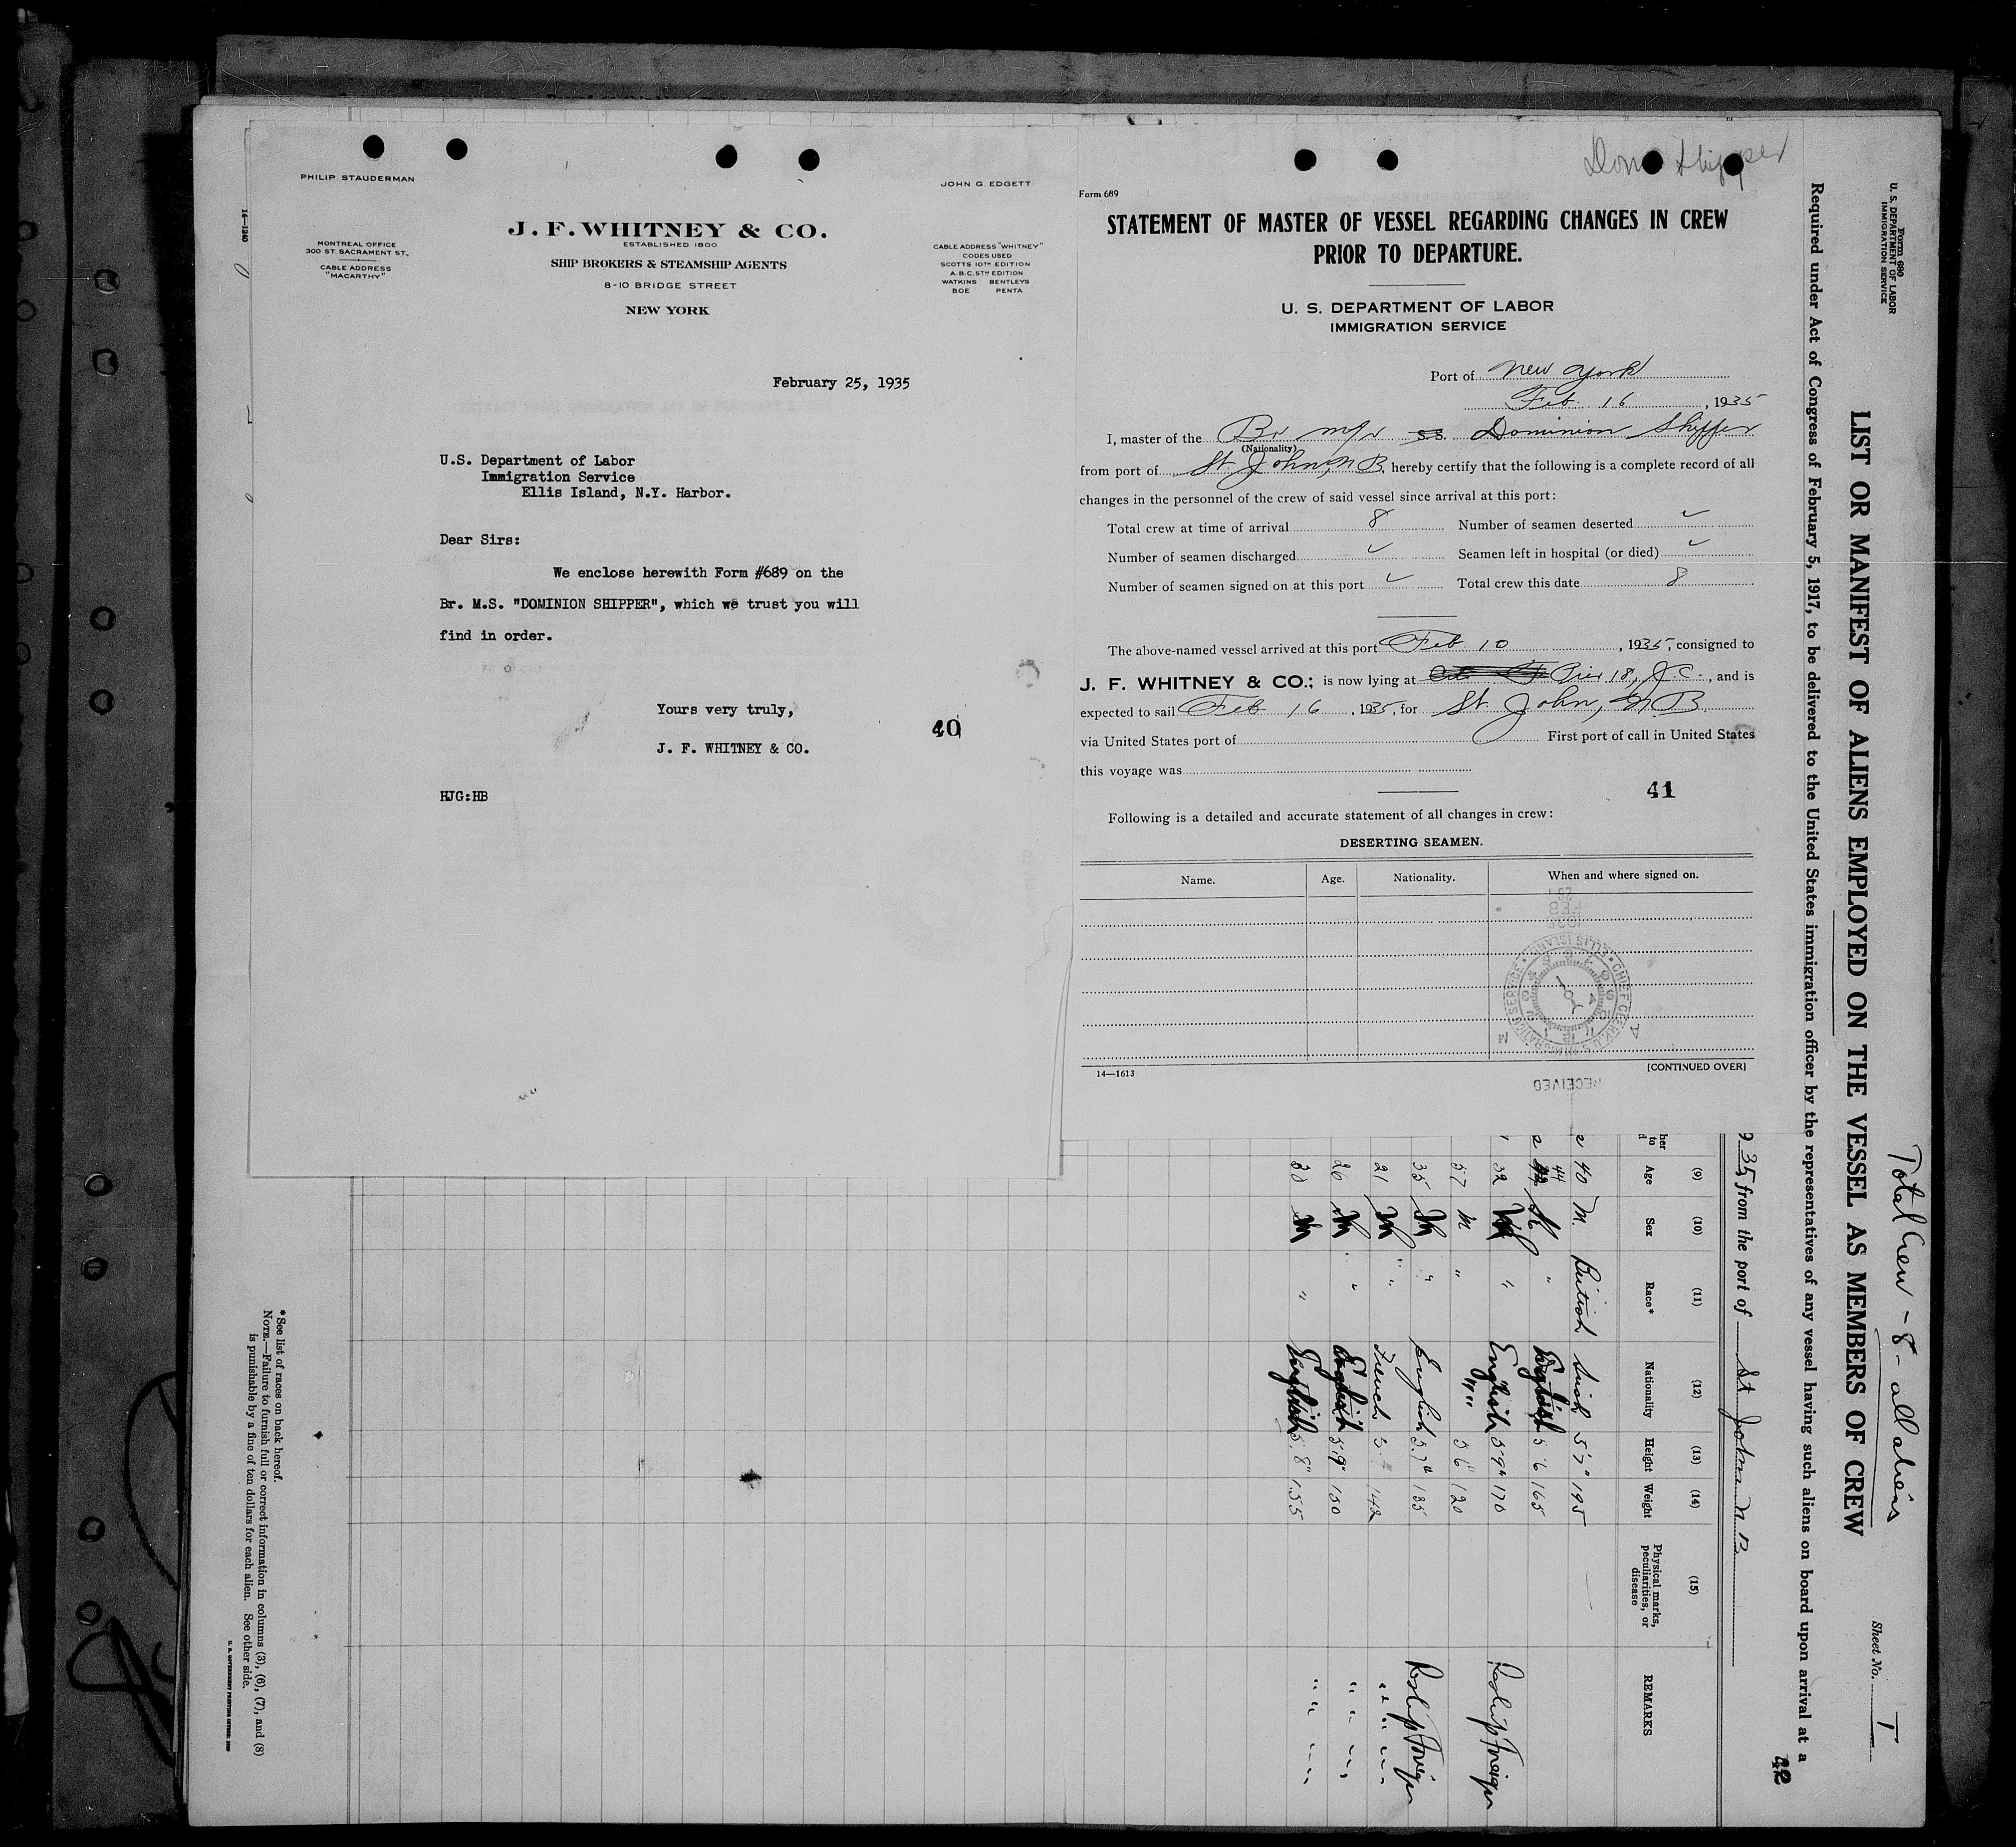 PHILIP STAUDERMAN
JOHN G. EDGETT
14—1240
J. F. WHITNEY & CO.
ESTABLISHED 1800
SHIP BROKERS & STEAMSHIP AGENTS
8-10 BRIDGE STREET
NEW YORK
MONTREAL OFFICE
300 ST. SACRAMENT ST.,
CABLE ADDRESS
"MACARTHY"
CABLE ADDRESS "WHITNEY"
CODES USED
SCOTTS 10TH EDITION
A.B.C. 5TH EDITION
WATKINS BENTLEYS
BOE PENTA
February 25, 1935
U.S. Department of Labor
Immigration Service
Ellis Island, N.Y. Harbor.
Dear Sirs:
We enclose herewith Form #689 on the
Br. M.S. "DOMINION SHIPPER", which we trust you will
find in order.
Yours very truly,
J. F. WHITNEY & CO.
40
HJG:HB
Dom Shipper
Form 689
STATEMENT OF MASTER OF VESSEL REGARDING CHANGES IN CREW
PRIOR TO DEPARTURE.
U. S. DEPARTMENT OF LABOR
IMMIGRATION SERVICE
Port of New York
Feb. 16, 1935
I, master of the Br m/v SS. Dominion Shipper
(Nationality)
from port of St. John, N.B. hereby certify that the following is a complete record of all
changes in the personnel of the crew of said vessel since arrival at this port:
Total crew at time of arrival 8 Number of seamen deserted ✓
Number of seamen discharged ✓ Seamen left in hospital (or died) ✓
Number of seamen signed on at this port ✓ Total crew this date 8
The above-named vessel arrived at this port Feb 10, 1935, consigned to
J. F. WHITNEY & CO.; is now lying at Pier 18, J.C., and is
expected to sail Feb 16, 1935, for St. John, N.B.
via United States port of First port of call in United States
this voyage was
41
Following is a detailed and accurate statement of all changes in crew:
DESERTING SEAMEN.
Name. Age. Nationality. When and where signed on.
1935
FEB
26
CHIEF CLERK, U.S. IMMIGRATION SERVICE • ELLIS ISLAND •
A M
14—1613
[CONTINUED OVER]
RECEIVED
Form 680
U. S. DEPARTMENT OF LABOR
IMMIGRATION SERVICE
Total Crew - 8 - all aliens
Sheet No. 1
LIST OR MANIFEST OF ALIENS EMPLOYED ON THE VESSEL AS MEMBERS OF CREW
Required under Act of Congress of February 5, 1917, to be delivered to the United States immigration officer by the representatives of any vessel having such aliens on board upon arrival at a
42
35 from the port of St John N B
(9) (10) (11) (12) (13) (14) (15)
her to Age Sex Race* Nationality Height Weight Physical marks, peculiarities, or disease REMARKS
40 M. British Irish 5'7" 195
44 M " English 5 6 165
32 M " English 5'9" 170 Reship Foreign
57 M " " " 5 6" 120
35 M " English 5.7" 135 Reship Foreign
21 M " French 142 " " " "
26 M " English 5'9" 150 " " " "
30 M " English 5.8" 155 " " " "
*See list of races on back hereof.
NOTE.—Failure to furnish full or correct information in columns (3), (6), (7), and (8)
is punishable by a fine of ten dollars for each alien. See other side.